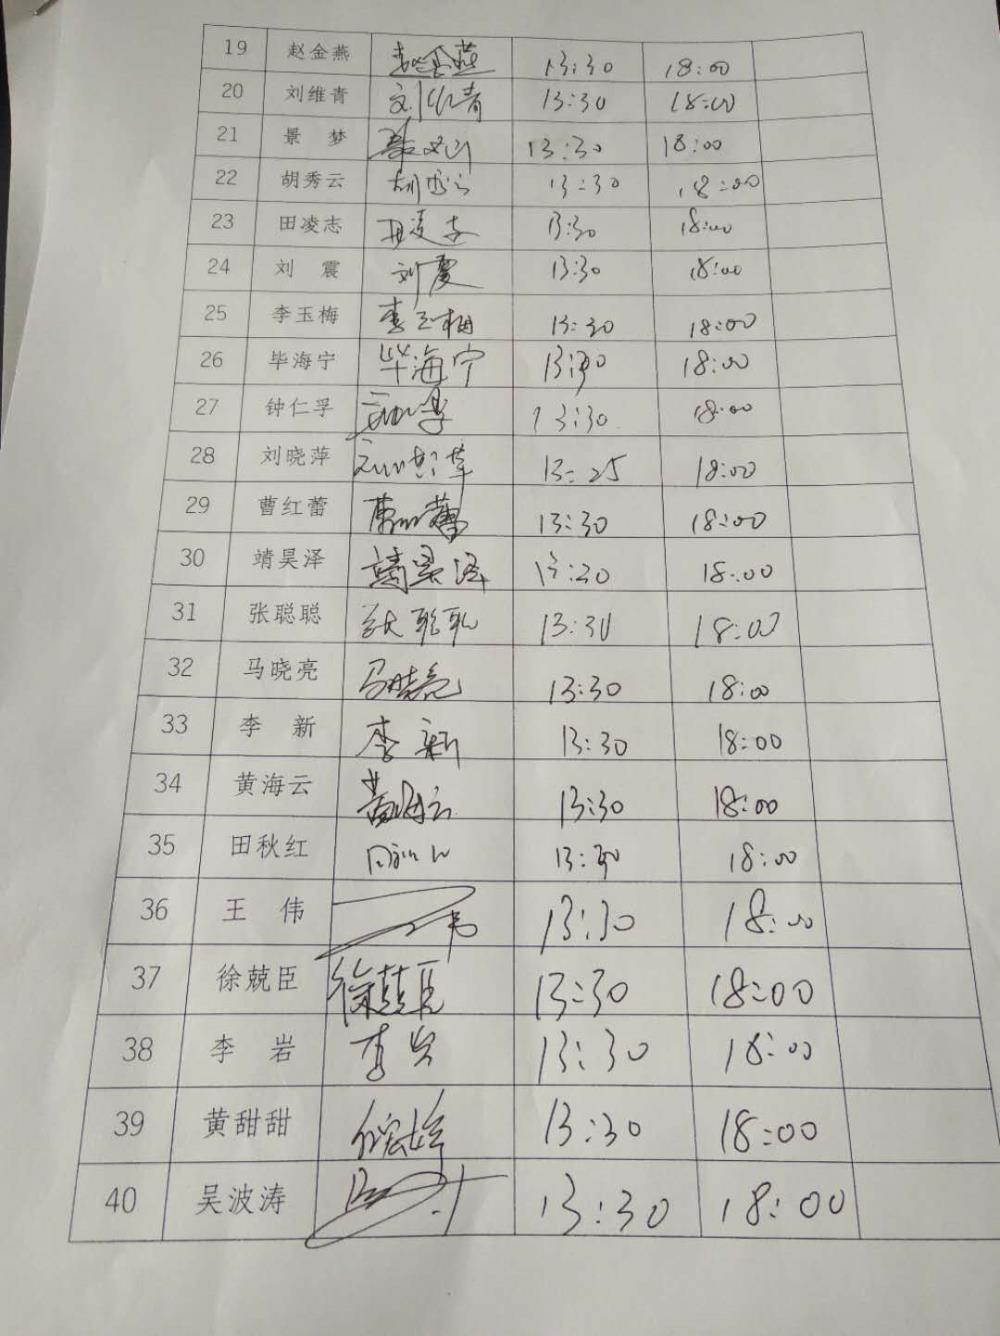 19 赵金燕 赵金燕 13:30 18:00
20 刘维青 刘维青 13:30 18:00
21 景 梦 13:30 18:00
22 胡秀云 胡秀云 13:30 18:00
23 田凌志 田凌志 13:30 18:00
24 刘 震 刘震 13:30 18:00
25 李玉梅 李玉梅 13:30 18:00
26 毕海宁 毕海宁 13:30 18:00
27 钟仁孚 13:30 18:00
28 刘晓萍 13:25 18:00
29 曹红蕾 曹红蕾 13:30 18:00
30 靖昊泽 靖昊泽 13:20 18:00
31 张聪聪 张聪聪 13:30 18:00
32 马晓亮 马晓亮 13:30 18:00
33 李 新 李新 13:30 18:00
34 黄海云 黄海云 13:30 18:00
35 田秋红 田秋红 13:30 18:00
36 王 伟 王伟 13:30 18:00
37 徐兢臣 徐兢臣 13:30 18:00
38 李 岩 李岩 13:30 18:00
39 黄甜甜 13:30 18:00
40 吴波涛 13:30 18:00